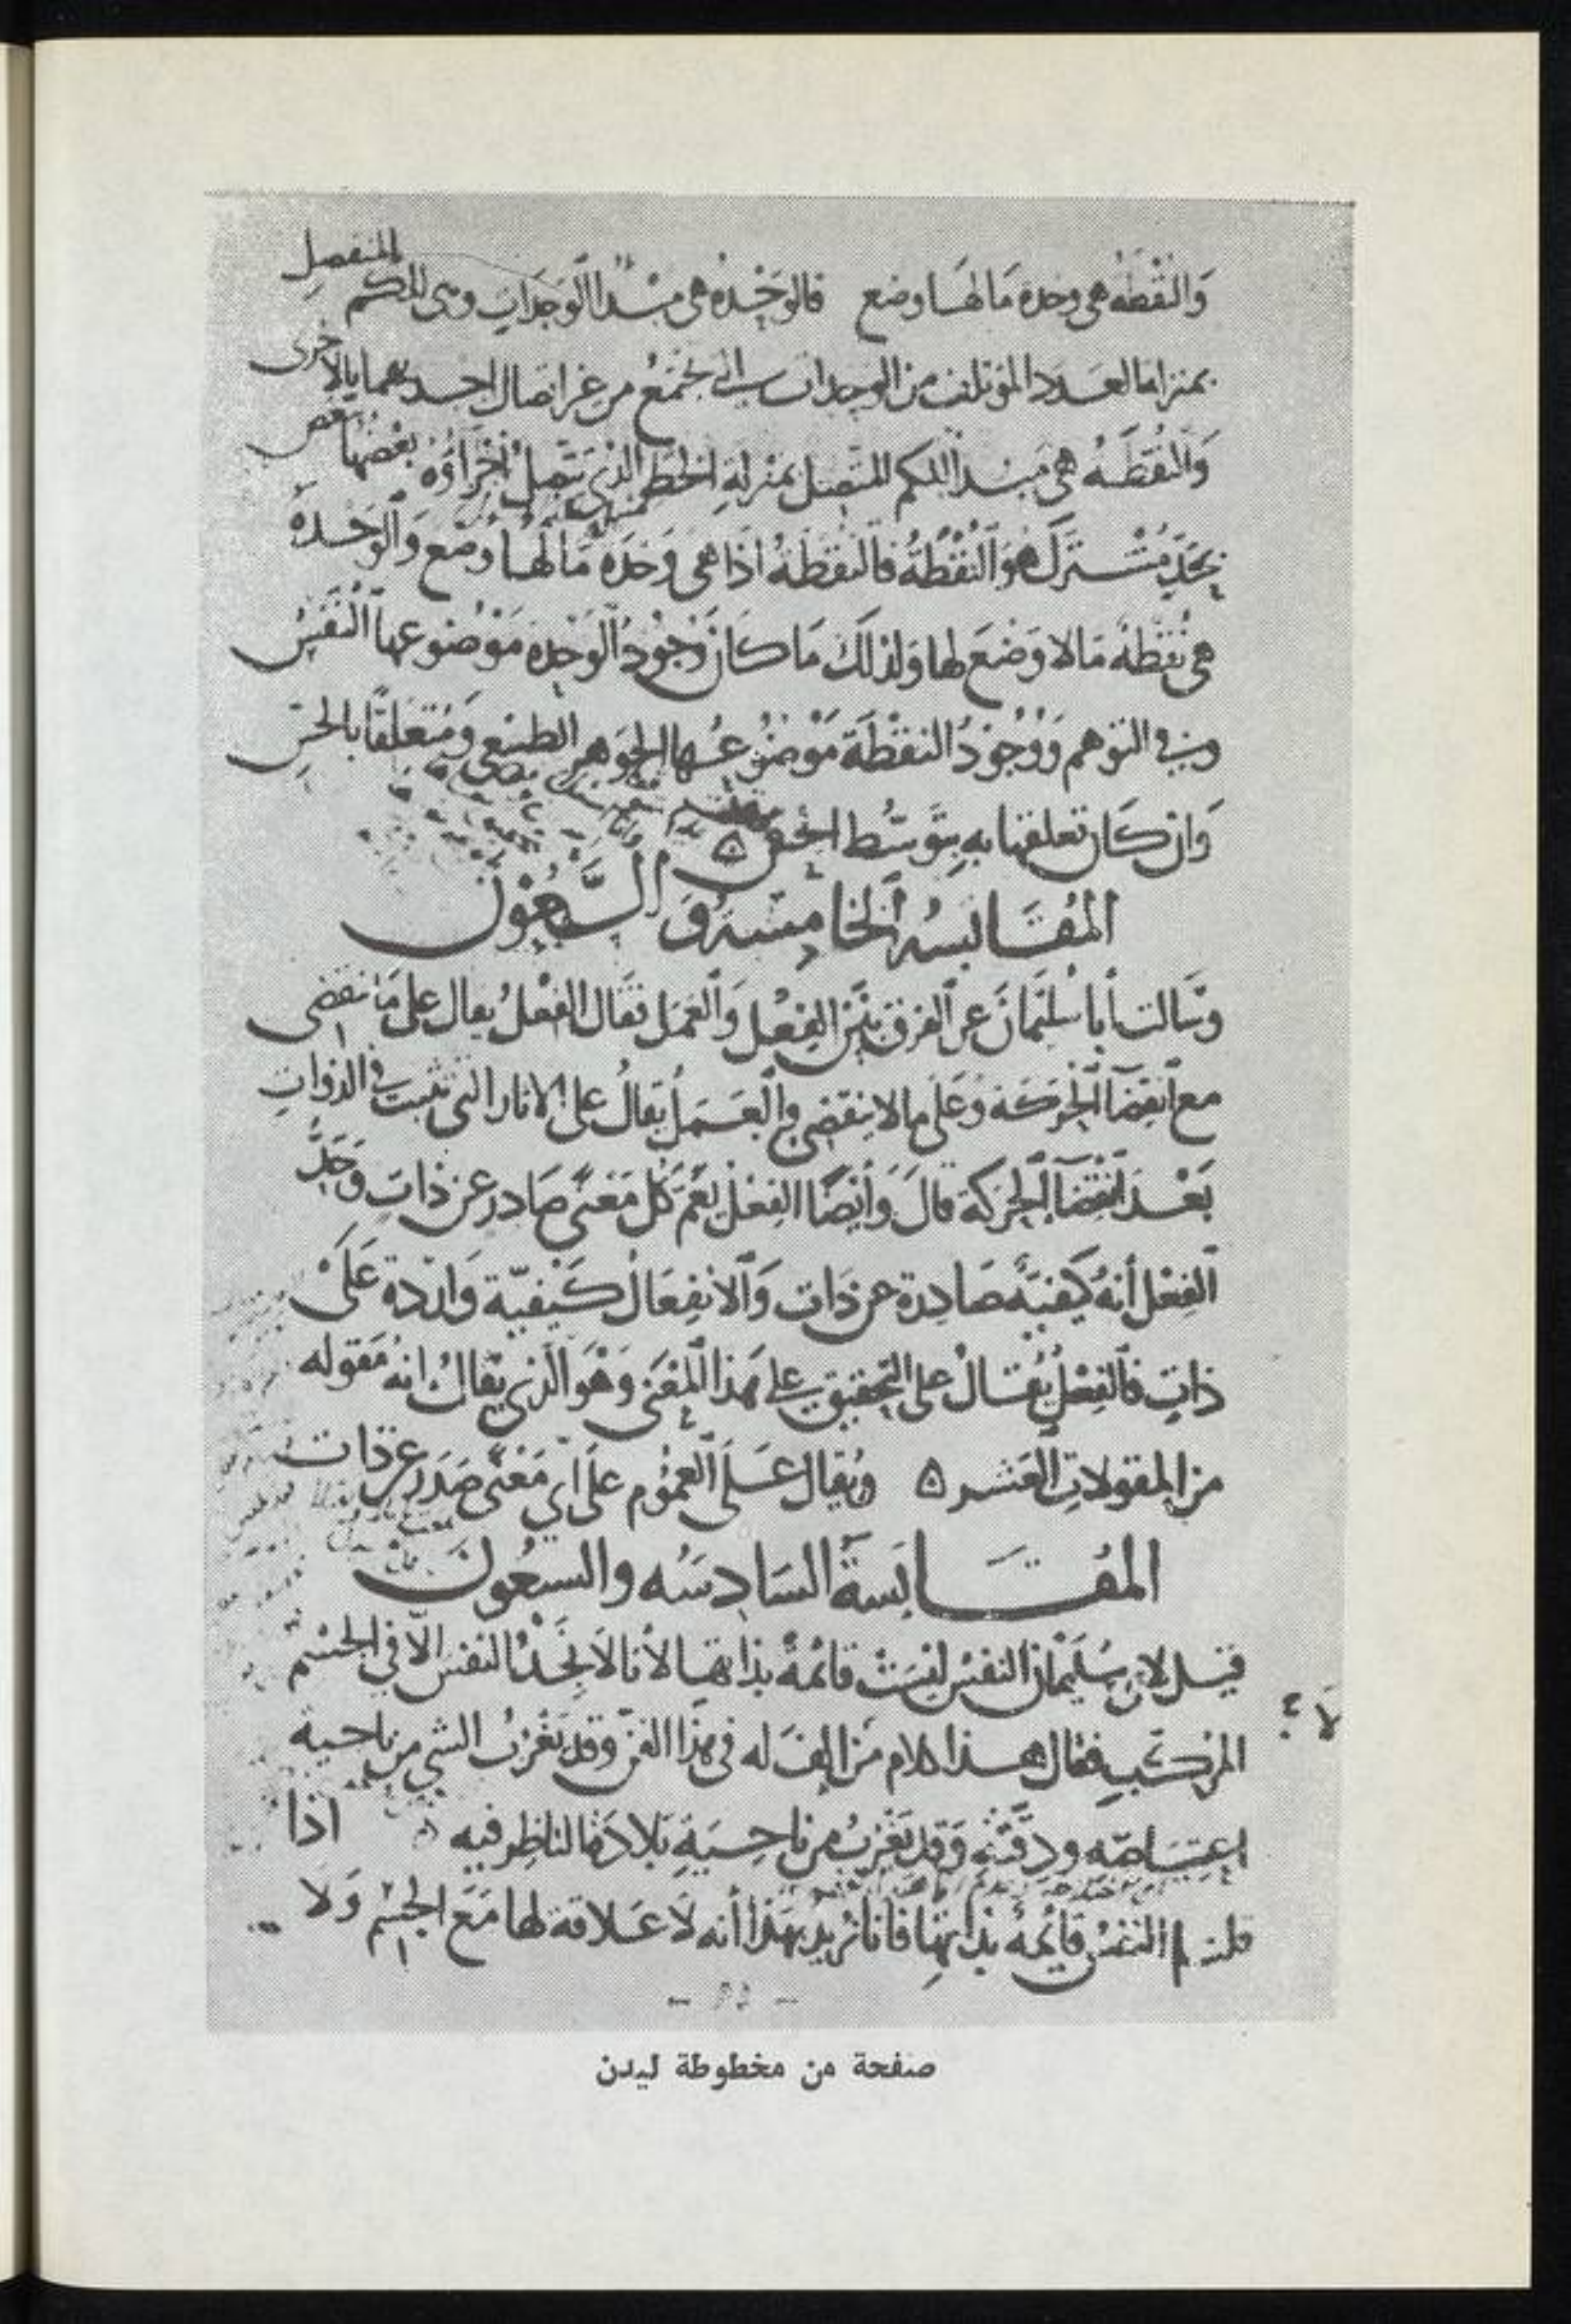 وَالنُّقْطَة هى وحدة مَا لهَا وضع فالوَحْدة هى مبْدأ الوَحَدَاتِ وهى للكم المنفصل
بمنزلة العدد المؤتلف من الوحدات التى تجتمع من غير اتصال احديهما بالاخرى
وَالنُّقطَة هى مَبدأ الكم المتصل بمنزلةِ الخط الذى تتصل أجْزاؤه بعْضهَا ببعض
بحَدّ مُشْترَك هوَ النُّقْطَةُ فالنُّقطَةُ اذًا هى وَحْدَة مَا لهَا وضع وَالوَحْدَةُ
هى نُقْطَةٌ مَا لا وَضْعَ لها وَلذلكَ مَا كانَ وُجُودُ الوَحدة مَوْضوعها النَّفسُ
وفى التوهم وَوُجُودُ النقْطَة مَوْضُوعُها الجَوهر الطبيعى وَمُتعَلقًا بالحسِّ
وَان كَان تعلقها به بتَوَسُّط
المُقَابَسَةُ الخَامِسَةُ وَ السَّبْعُونَ
وسَألت أبا سُليمَانَ عن الفرق بَيْنَ الفِعْل وَالعَمَل فقَالَ الفِعْلُ يقال على مَا ينقضى
مع انْقِضَاء الحَركَة وَعَلى ما لا ينقضى والعَمَلُ يقالُ على الاثار التى تثبت فى الذواتِ
بَعْدَ انْقِضَاء الحَركة قالَ وَأيْضًا الفِعْلُ يَعُمّ كُلَّ مَعْنًى صَادر عن ذاتٍ وَحَدُّ
الفِعْل أنهُ كَيْفيَّةٌ صَادِرة عن ذَات وَالانفِعَالُ كَيْفيّة وَاردة عَلَى
ذاتٍ فالفِعْلُ يُقَالُ على التحقيق على هَذا المعْنَى وَهْوَ الذى يقالُ انهُ مَقوله
من المقولاتِ العَشر ٥ ويُقال عَلَى العُمُوم علَى أي مَعْنًى صَدَرَ عن ذات
المُقَابَسَة السَادِسَه والسبعُونَ
قيل لابى سُلَيْمانَ النفسُ ليْسَتْ قائمةً بذاتهَا لأنا لا نَجدُ النفسَ الّا في الجسْم
المركَّبِ فقال هذا كلام مَن الف له فى هذا الفنّ وقد يَعْزُبُ الشى من ناحية
اعتِيَاصِه ودِقَّتِه وَقد يَعْزُبُ من ناحِيَةِ بَلادَة الناظِر فيه اذا
قلنا النفسُ قائمة بذاتِهَا فانا نُريدُ بهَذا أنه لا عَلاقة لها مَعَ الجسْم وَلا
لا
صفحة من مخطوطة ليدن